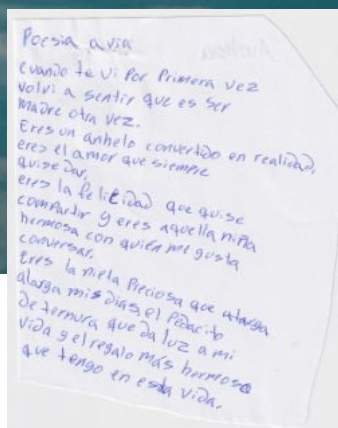 Poesia a via
cuando te vi Por Primera vez
volvi a sentir que es ser
madre otra vez.
Eres un anhelo convertido en realidad,
eres el amor que siempre
quise dar,
eres la felicidad que quise
compartir y eres aquella niña
hermosa con quien me gusta
conversar,
Eres la nieta Preciosa que alarga
alarga mis dias, el Pedacito
de ternura que da luz a mi
vida y el regalo más hermoso
que tengo en esta vida.